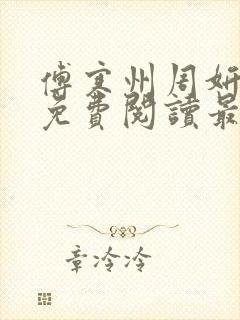 傅寒州周妍
免費閱讀最
章冷冷